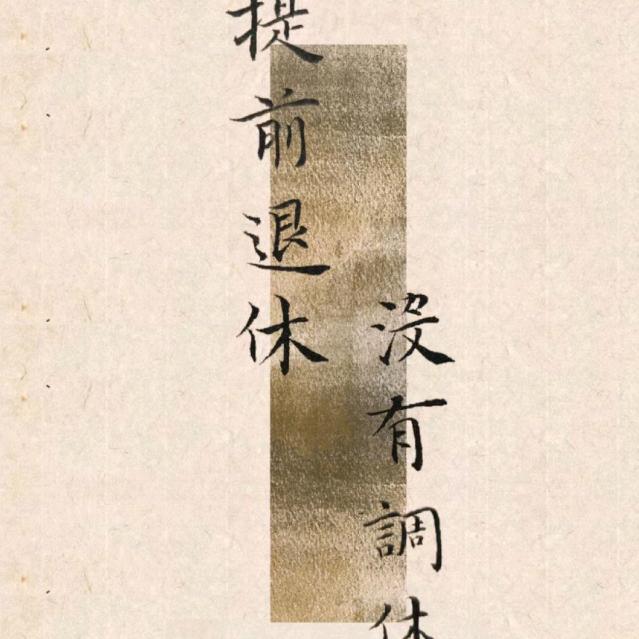 沒有調休
提前退休